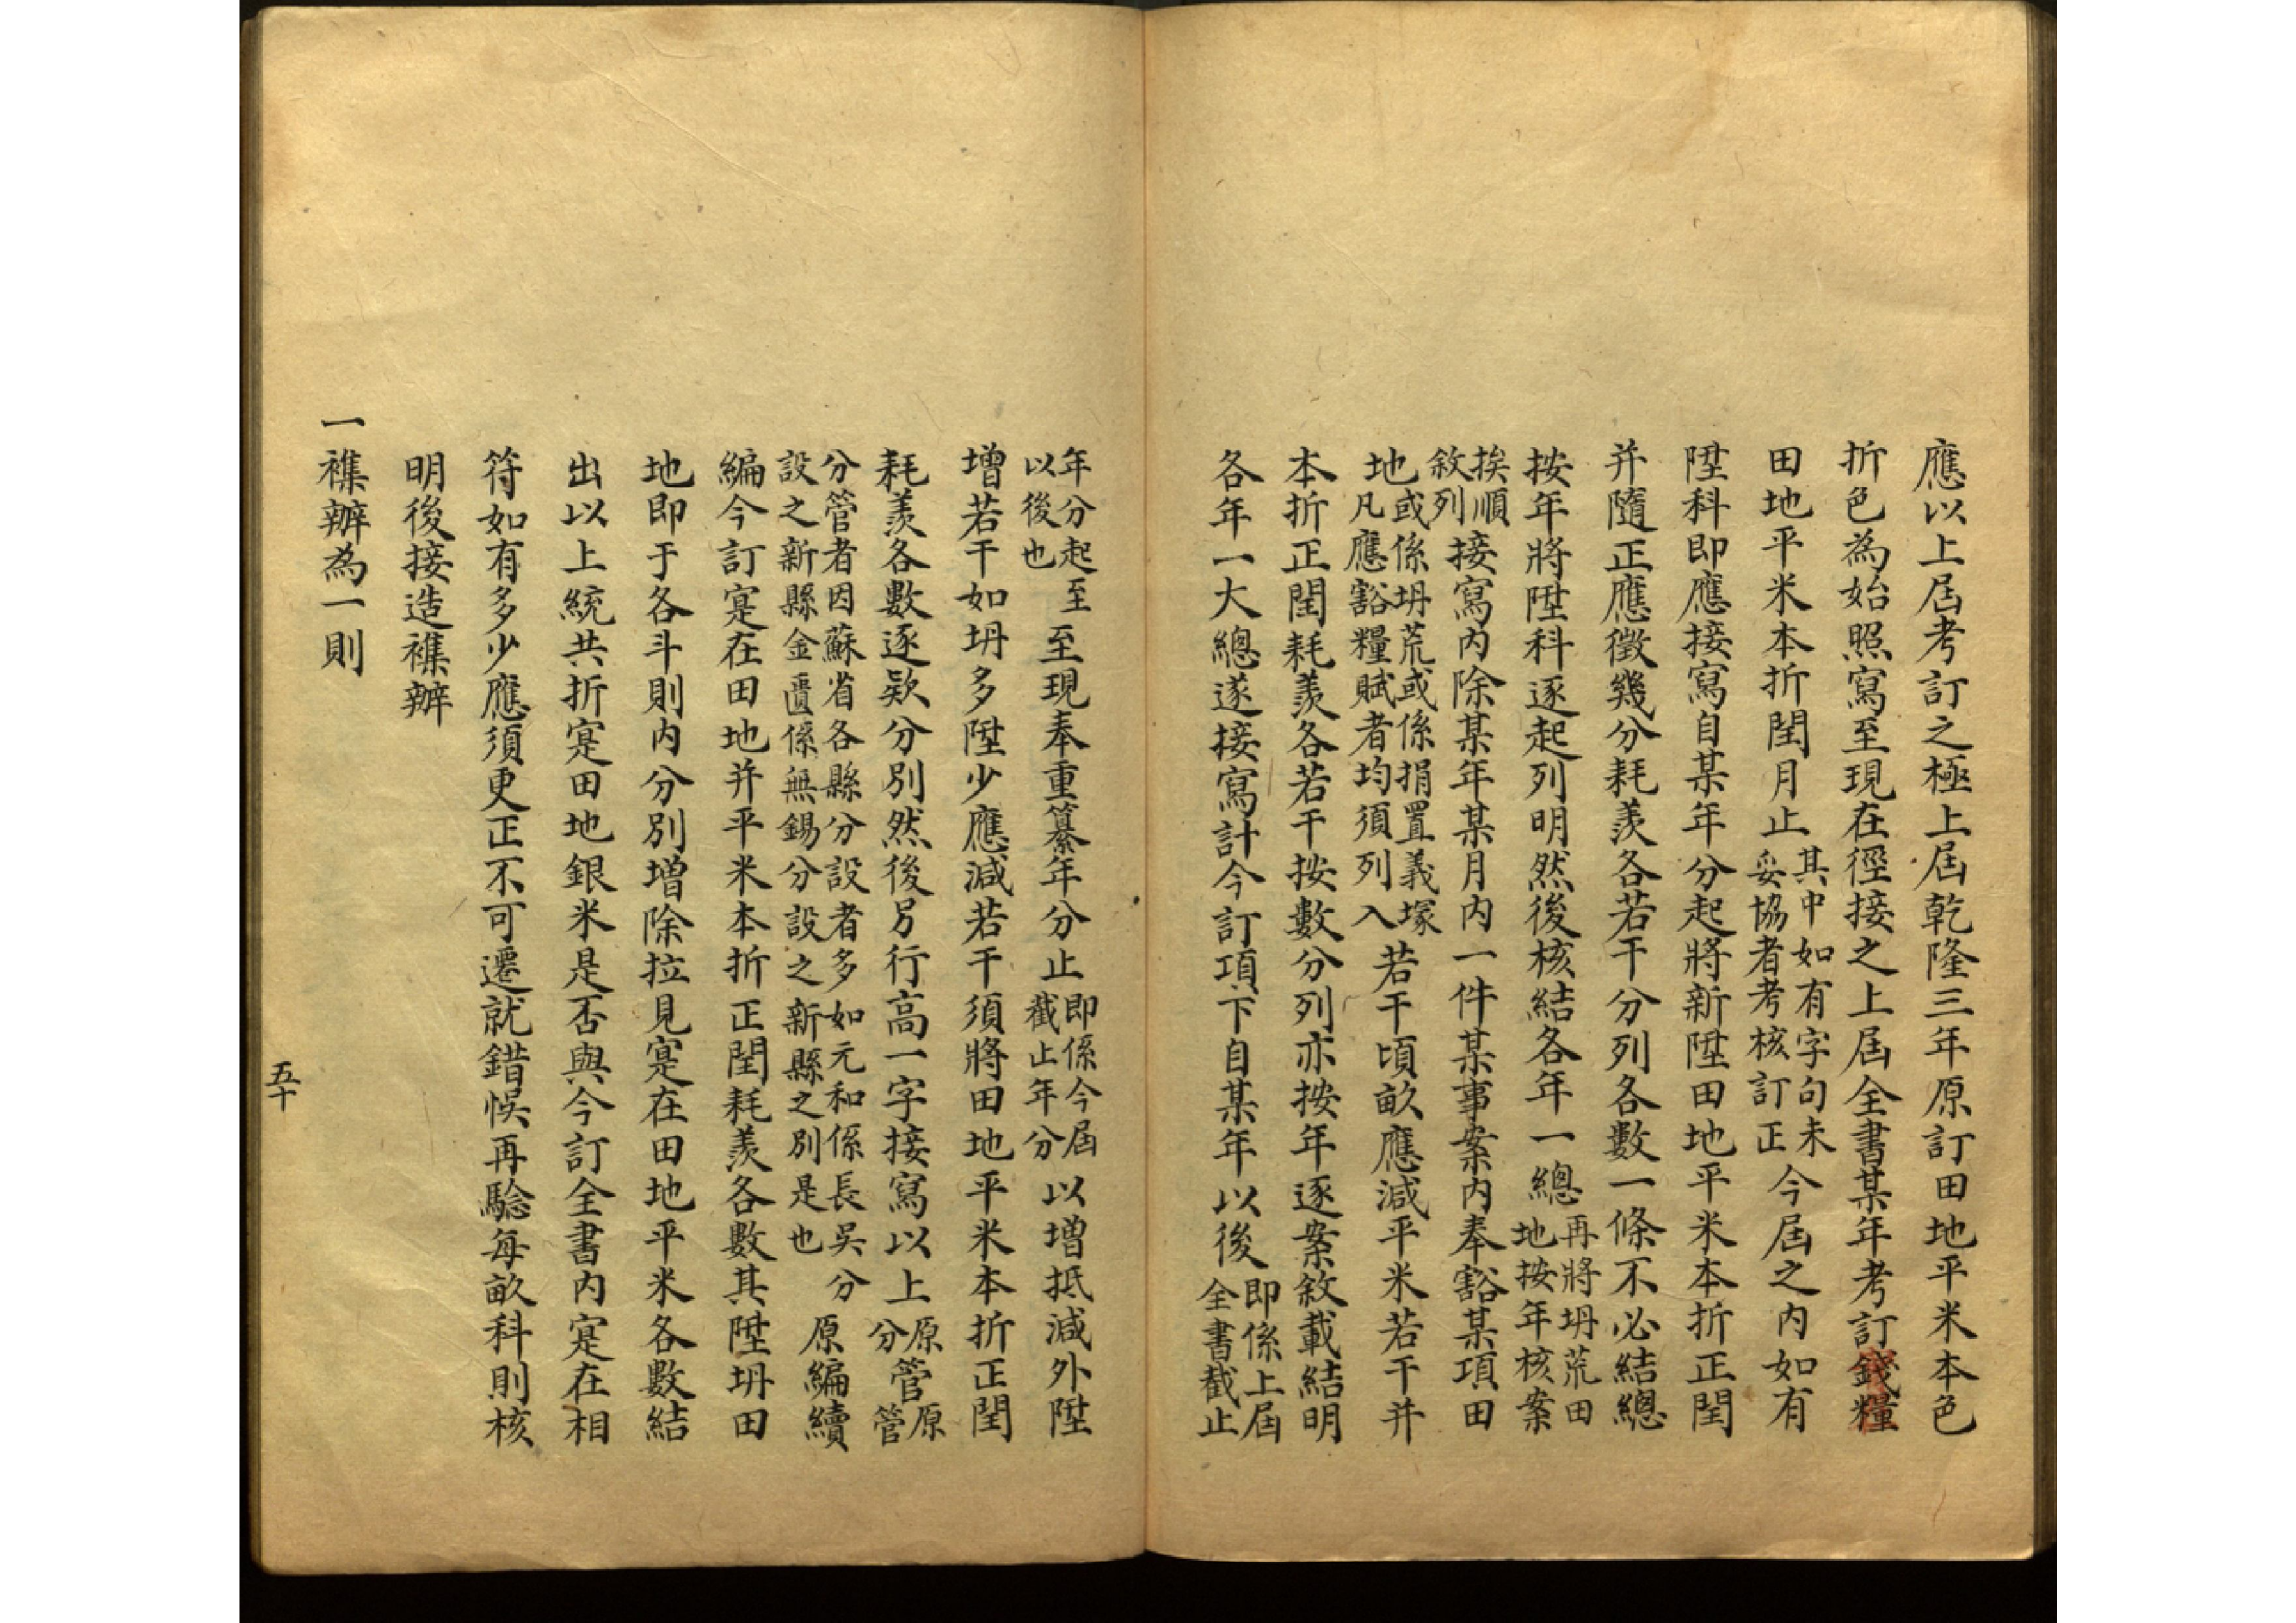 應以上屆考訂之極上屆乾隆三年原訂田地平米本色
折色為始照寫至現在徑接之上屆全書某年考訂錢糧
田地平米本折閏月止其中如有字句未
妥協者考核訂正今屆之內如有
陞科即應接寫自某年分起將新陞田地平米本折正閏
并隨正應徵幾分耗羨各若干分列各數一條不必結總
按年將陞科逐起列明然後核結各年一總再將坍荒田
地按年核案
挨順
敘列接寫內除某年某月內一件某事案內奉豁某項田
地或係坍荒或係捐置義塚
凡應豁糧賦者均須列入若干頃畝應減平米若干并
本折正閏耗羨各若干按數分列亦按年逐案敘載結明
各年一大總遂接寫計今訂項下自某年以後即係上屆
全書截止
年分起至
以後也至現奉重纂年分止即係今屆
截止年分以增抵減外陞
增若干如坍多陞少應減若干須將田地平米本折正閏
耗羨各數逐欵分別然後另行高一字接寫以上原管原
分管
分管者因蘇省各縣分設者多如元和係長吳分
設之新縣金匱係無錫分設之新縣之別是也原編續
編今訂寔在田地并平米本折正閏耗羨各數其陞坍田
地即于各斗則內分別增除拉見寔在田地平米各數結
出以上統共折寔田地銀米是否與今訂全書內寔在相
符如有多少應須更正不可遷就錯悞再驗每畝科則核
明後接造襍辦
一襍辦為一則
五十